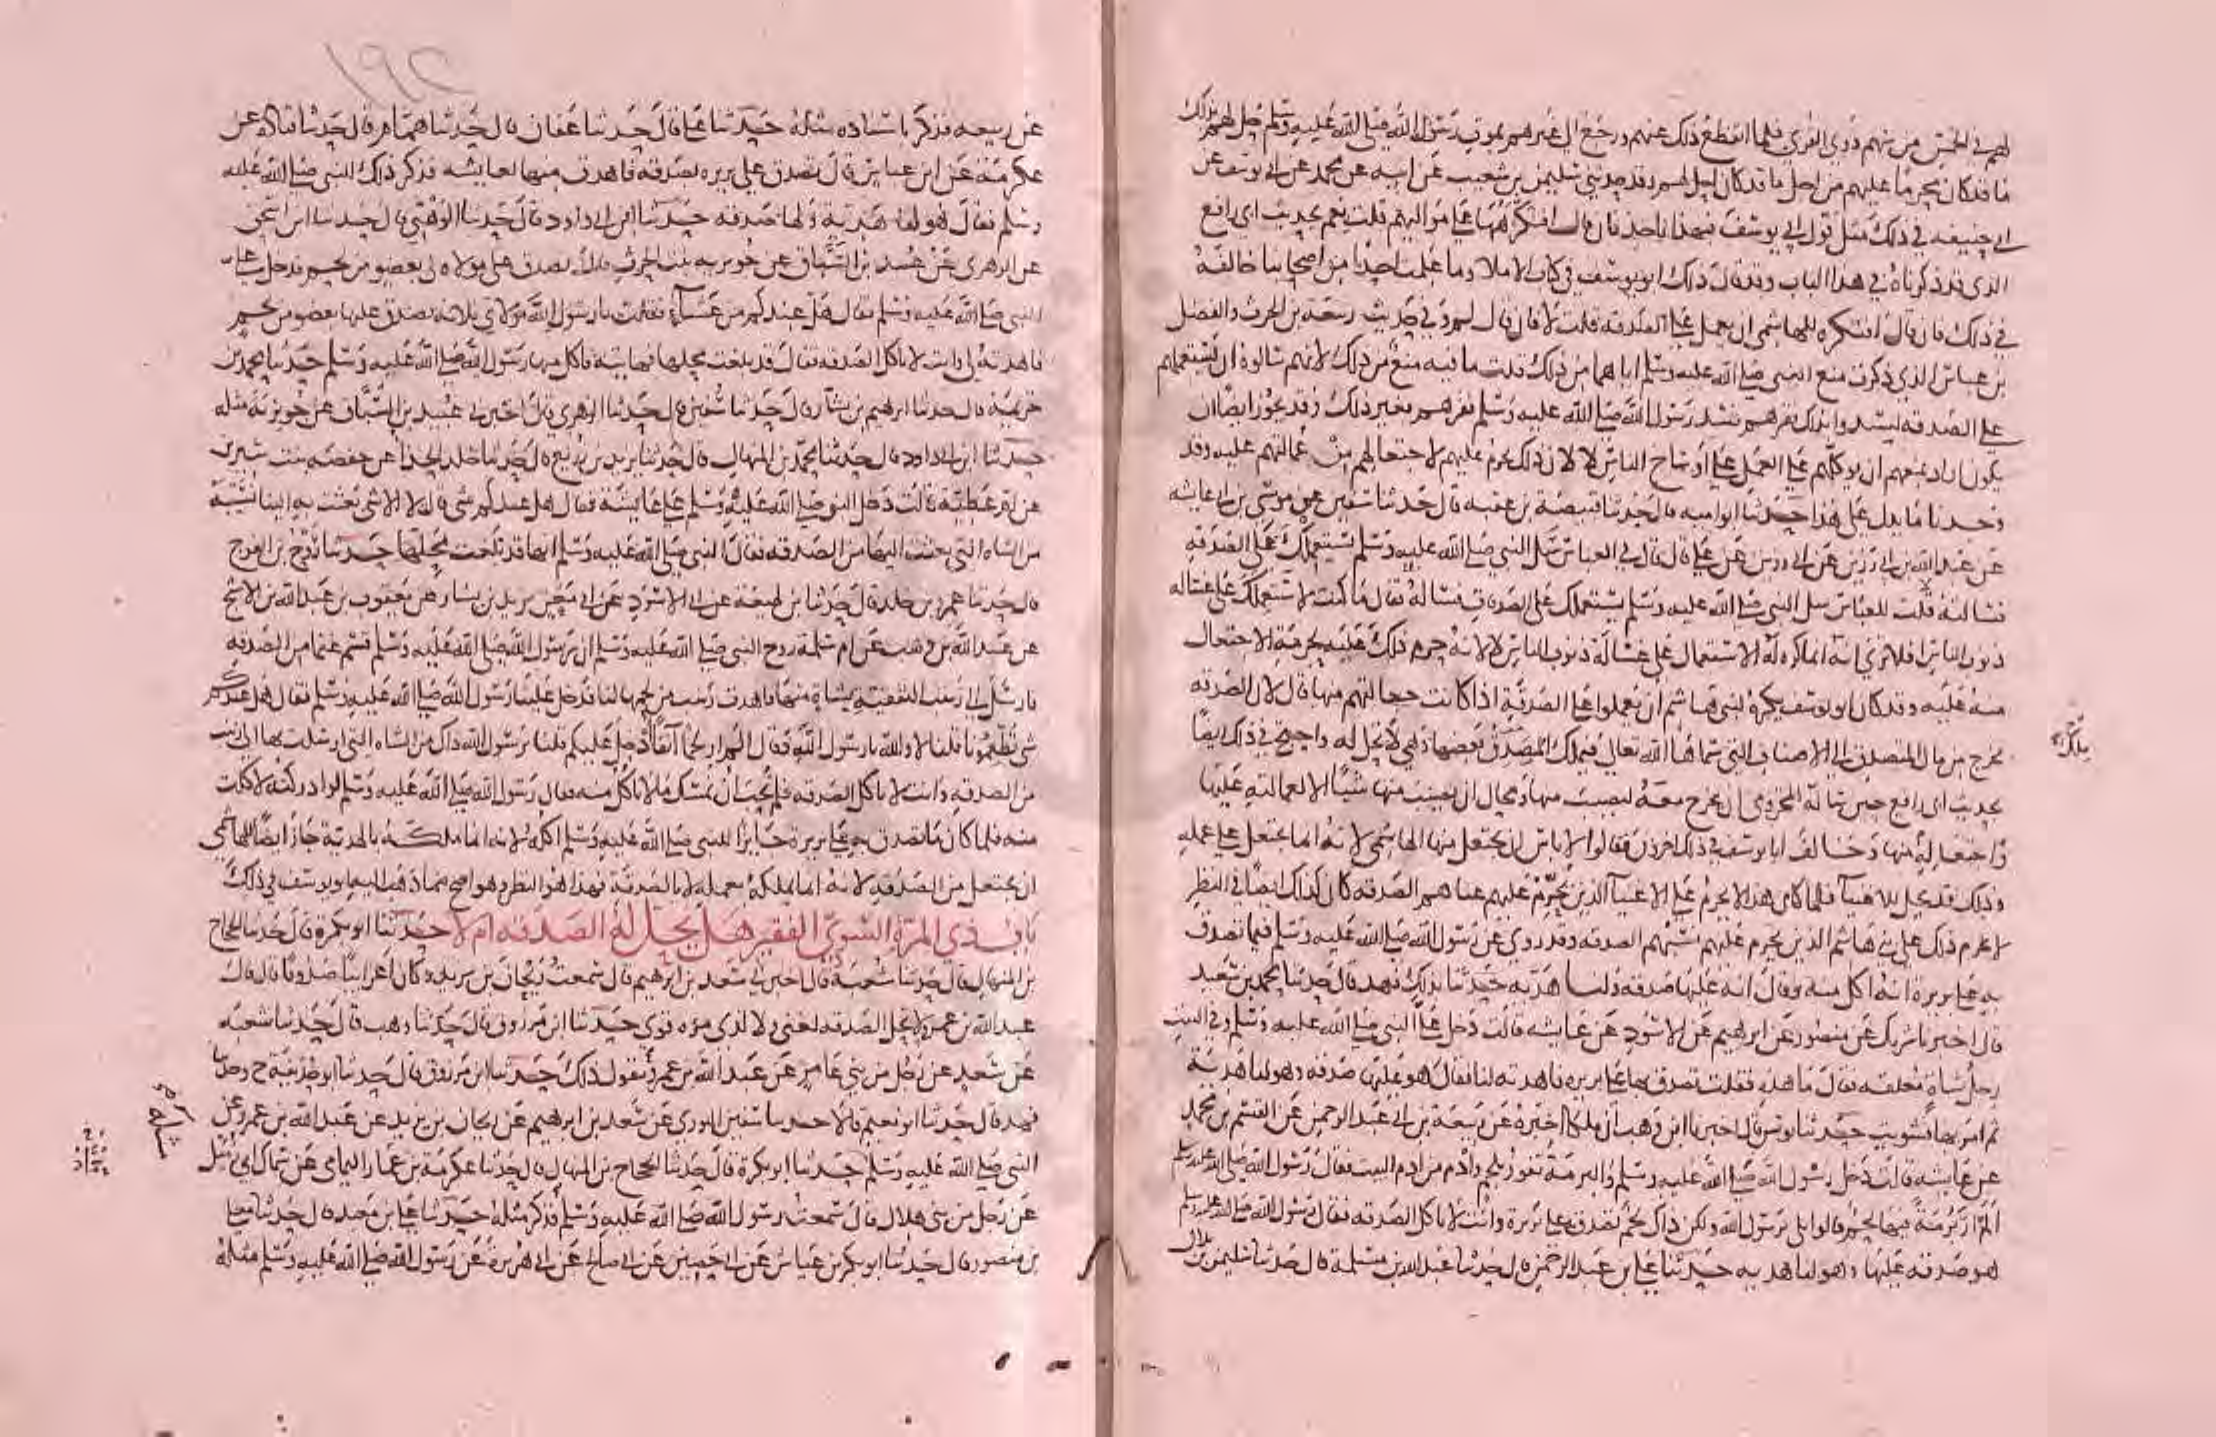 لهم في الخمس من سهم ذوي القربى فلما انقطع ذلك عنهم ورجع الى غيرهم بموت رسول الله صلى الله عليه وسلم حل لهم بذلك
ما قد كان محرما عليهم من اجل ما قد كان احل لهم وقد حدثني سليمن بن شعيب عن ابيه عن محمد عن ابي يوسف عن
ابي حنيفه في ذلك مثل قول ابي يوسف فبهذا ناخذ فان قال افتكرهها على مواليهم قلت نعم لحديث ابي رافع
الذي قد ذكرناه في هذا الباب وقد قال ذلك ابو يوسف في كتاب الاملا وما علمت احدا من اصحابنا خالفه
في ذلك فان قال افتكره للهاشمي ان يعمل على الصدقه قلت لا فان قال لم وفي حديث ربيعه بن الحرث والفضل
بن عباس الذي ذكرت منع النبي صلى الله عليه وسلم اياهما من ذلك قلت ما فيه منع من ذلك لانهم سالوه ان يستعملهم
على الصدقه ليسدوا بذلك فقرهم فسد رسول الله صلى الله عليه وسلم فقرهم بغير ذلك وقد يجوز ايضا ان
يكون اراد بمنعهم ان يوكلهم على العمل على اوساخ الناس لا لان ذلك يحرم عليهم لاجتعالهم منه عمالتهم عليه وقد
وجدنا ما يدل على هذا حدثنا ابو اميه قال حدثنا قبيصة بن عقبه قال حدثنا سفين عن موسى بن ابي عايشه
عن عبد الله بن ابي رزين عن ابي رزين عن علي قال قلت للعباس سل النبي صلى الله عليه وسلم يستعملك على الصدقه
فسالته قلت للعباس سل النبي صلى الله عليه وسلم يستعملك على الصدقات فساله فقال ما كنت لاستعملك على غساله
ذنوب الناس افلا ترى انه انما كره له الاستعمال على غسالة ذنوب الناس لا لانه حرم ذلك عليه لحرمة الاجتعال
منه عليه وقد كان ابو يوسف يكره لبني هاشم ان يعملوا على الصدقة اذا كانت جعالتهم منها قال لان الصدقه
تخرج من مال المتصدق الى الاصناف التي سماها الله تعالى فيملك المصدق بعضها وهي لا تحل له واحتج في ذلك ايضا
بحديث ابي رافع حين ساله المخزومي ان يخرج معه ليصيب منها ومحال ان يصيب منها شيا الا بعمالته عليها
واجتعاله منها وخالف ابا يوسف في ذلك اخرون فقالوا لا باس ان يجتعل منها الهاشمي لانه انما يجتعل على عمله
وذلك قد يحل للاغنيا فلما كان هذا لا يحرم على الاغنيا الذين يحرم عليهم غناهم الصدقه كان كذلك ايضا في النظر
لا يحرم ذلك على بني هاشم الذين يحرم عليهم نسبهم الصدقه وقد روي عن رسول الله صلى الله عليه وسلم فيما تصدق
به على بريرة انه اكل منه وقال انه عليها صدقه ولنا هديه حدثنا بذلك فهد قال حدثنا محمد بن سعيد
قال اخبرنا شريك عن منصور عن ابرهيم عن الاسود عن عايشه قالت دخل علي النبي صلى الله عليه وسلم وفي البيت
رجل شاة معلقه فقال ما هذه فقلت تصدق بها على بريره فاهدته لنا فقال هو عليها صدقه وهو لنا هدية
ثم امر بها فشويت حدثنا يونس قال اخبرنا ابن وهب ان ملكا اخبره عن ربيعة بن ابي عبد الرحمن عن القسم بن محمد
عن عايشه قالت دخل رسول الله صلى الله عليه وسلم والبرمة تفور بلحم وادم من ادم البيت فقال رسول الله صلى الله عليه وسلم
الم ار برمة فيها لحم قالوا بلى يرسول الله ولكن ذاك لحم تصدق به على بريرة وانت لا تاكل الصدقه فقال رسول الله صلى الله عليه وسلم
هو صدقه عليها وهو لنا هديه حدثنا علي بن عبد الرحمن قال حدثنا عبد الله بن مسلمة قال حدثنا سليمن بن بلال
عن ربيعه فذكر باسناده مثله حدثنا علي قال حدثنا عفان قال حدثنا همام قال حدثنا قتاده عن
عكرمة عن ابن عباس قال تصدق على بريره بصدقه فاهدت منها لعايشه فذكر ذلك للنبي صلى الله عليه
وسلم فقال هو لنا هدية ولها صدقه حدثنا ابن ابي داود قال حدثنا الوهبي قال حدثنا ابن اسحق
عن الزهري عن عبيد بن السباق عن جويريه بنت الحرث قالت تصدق على مولاه لي بعضو من لحم فدخل علي
النبي صلى الله عليه وسلم فقال هل عندكم من عشاء فقلت يا رسول الله مولاتي فلانه تصدق عليها بعضو من لحم
فاهدته لي وانت لا تاكل الصدقه فقال قد بلغت محلها فهاتيه فاكل منها رسول الله صلى الله عليه وسلم حدثنا محمد بن
خزيمة قال حدثنا ابرهيم بن بشار قال حدثنا سفين قال حدثنا الزهري قال اخبرني عبيد بن السباق عن جويرية مثله
حدثنا ابن ابي داود قال حدثنا محمد بن المنهال قال حدثنا يزيد بن زريع قال حدثنا خالد الحذا عن حفصه بنت سيرين
عن ام عطية قالت دخل النبي صلى الله عليه وسلم على عايشة فقال هل عندكم شي قالت لا الا شي بعثت به الينا نسيبة
من الشاه التي بعثت اليها من الصدقه فقال النبي صلى الله عليه وسلم انها قد بلغت محلها حدثنا روح بن الفرج
قال حدثنا عمرو بن خالد قال حدثنا بن لهيعة عن ابي الاسود عن ابي معين يزيد بن يسار عن يعقوب بن عبد الله بن الاشج
عن عبد الله بن وهب عن ام سلمة زوج النبي صلى الله عليه وسلم ان رسول الله صلى الله عليه وسلم قسم غنما من الصدقه
فارسل الى زينب الثقفية بشاة منها فاهدت زينب من لحمها لنا فدخل علينا رسول الله صلى الله عليه وسلم فقال هل عندكم
شي تطعمونا قلنا لا والله يا رسول الله فقال الم ار لحما آنفا ادخل عليكم قلنا يرسول الله ذاك من الشاه التي ارسلت بها الى زينب
من الصدقه وانت لا تاكل الصدقه فلم نحب ان نمسك ما لا تاكل منه فقال رسول الله صلى الله عليه وسلم لو ادركته لاكلت
منه فلما كان ما تصدق به على بريرة جايزا للنبي صلى الله عليه وسلم اكله لانه انما ملكه بالهدية جاز ايضا للهاشمي
ان يجتعل من الصدقه لانه انما يملكه بعمله لا بالصدقة فهذا هو النظر وهو اصح مما ذهب اليه ابو يوسف في ذلك
باب ذي المرة السوي الفقير هل يحل له الصدقه ام لا حدثنا ابو بكرة قال حدثنا الحجاج
بن المنهال قال حدثنا شعبة قال اخبرني سعد بن ابرهيم قال سمعت ريحان بن يزيد وكان اعرابيا صدوقا قال قال
عبد الله بن عمرو لا تحل الصدقه لغني ولا لذي مره قوي حدثنا ابن مرزوق قال حدثنا وهب قال حدثنا شعبه
عن سعد عن رجل من بني عامر عن عبد الله بن عمرو يقول ذلك حدثنا ابن مرزوق قال حدثنا ابو حذيفة ح وحدثنا
فهد قال حدثنا ابو نعيم قالا حدثنا سفين الثوري عن سعد بن ابرهيم عن ريحان بن يزيد عن عبد الله بن عمرو عن
النبي صلى الله عليه وسلم حدثنا ابو بكرة قال حدثنا الحجاج بن المنهال قال حدثنا عكرمة بن عمار اليمامي عن سماك ابي زميل
عن رجل من بني هلال قال سمعت رسول الله صلى الله عليه وسلم فذكر مثله حدثنا علي بن معبد قال حدثنا معلى
بن منصور قال حدثنا ابو بكر بن عياش عن ابي حصين عن ابي صالح عن ابي هريرة عن رسول الله صلى الله عليه وسلم مثله